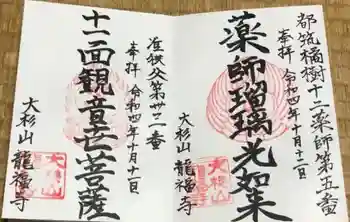 都筑橘樹十二薬師第五番
奉拝 令和四年十月十二日
薬師瑠璃光如来
大杉山 龍福寺
准秩父第廿二番
奉拝 令和四年十月十二日
十一面観音菩薩
大杉山 龍福寺